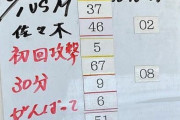 37
佐々木 46 02
初回攻撃 5
67
30分 9 08
がんばって 6
51